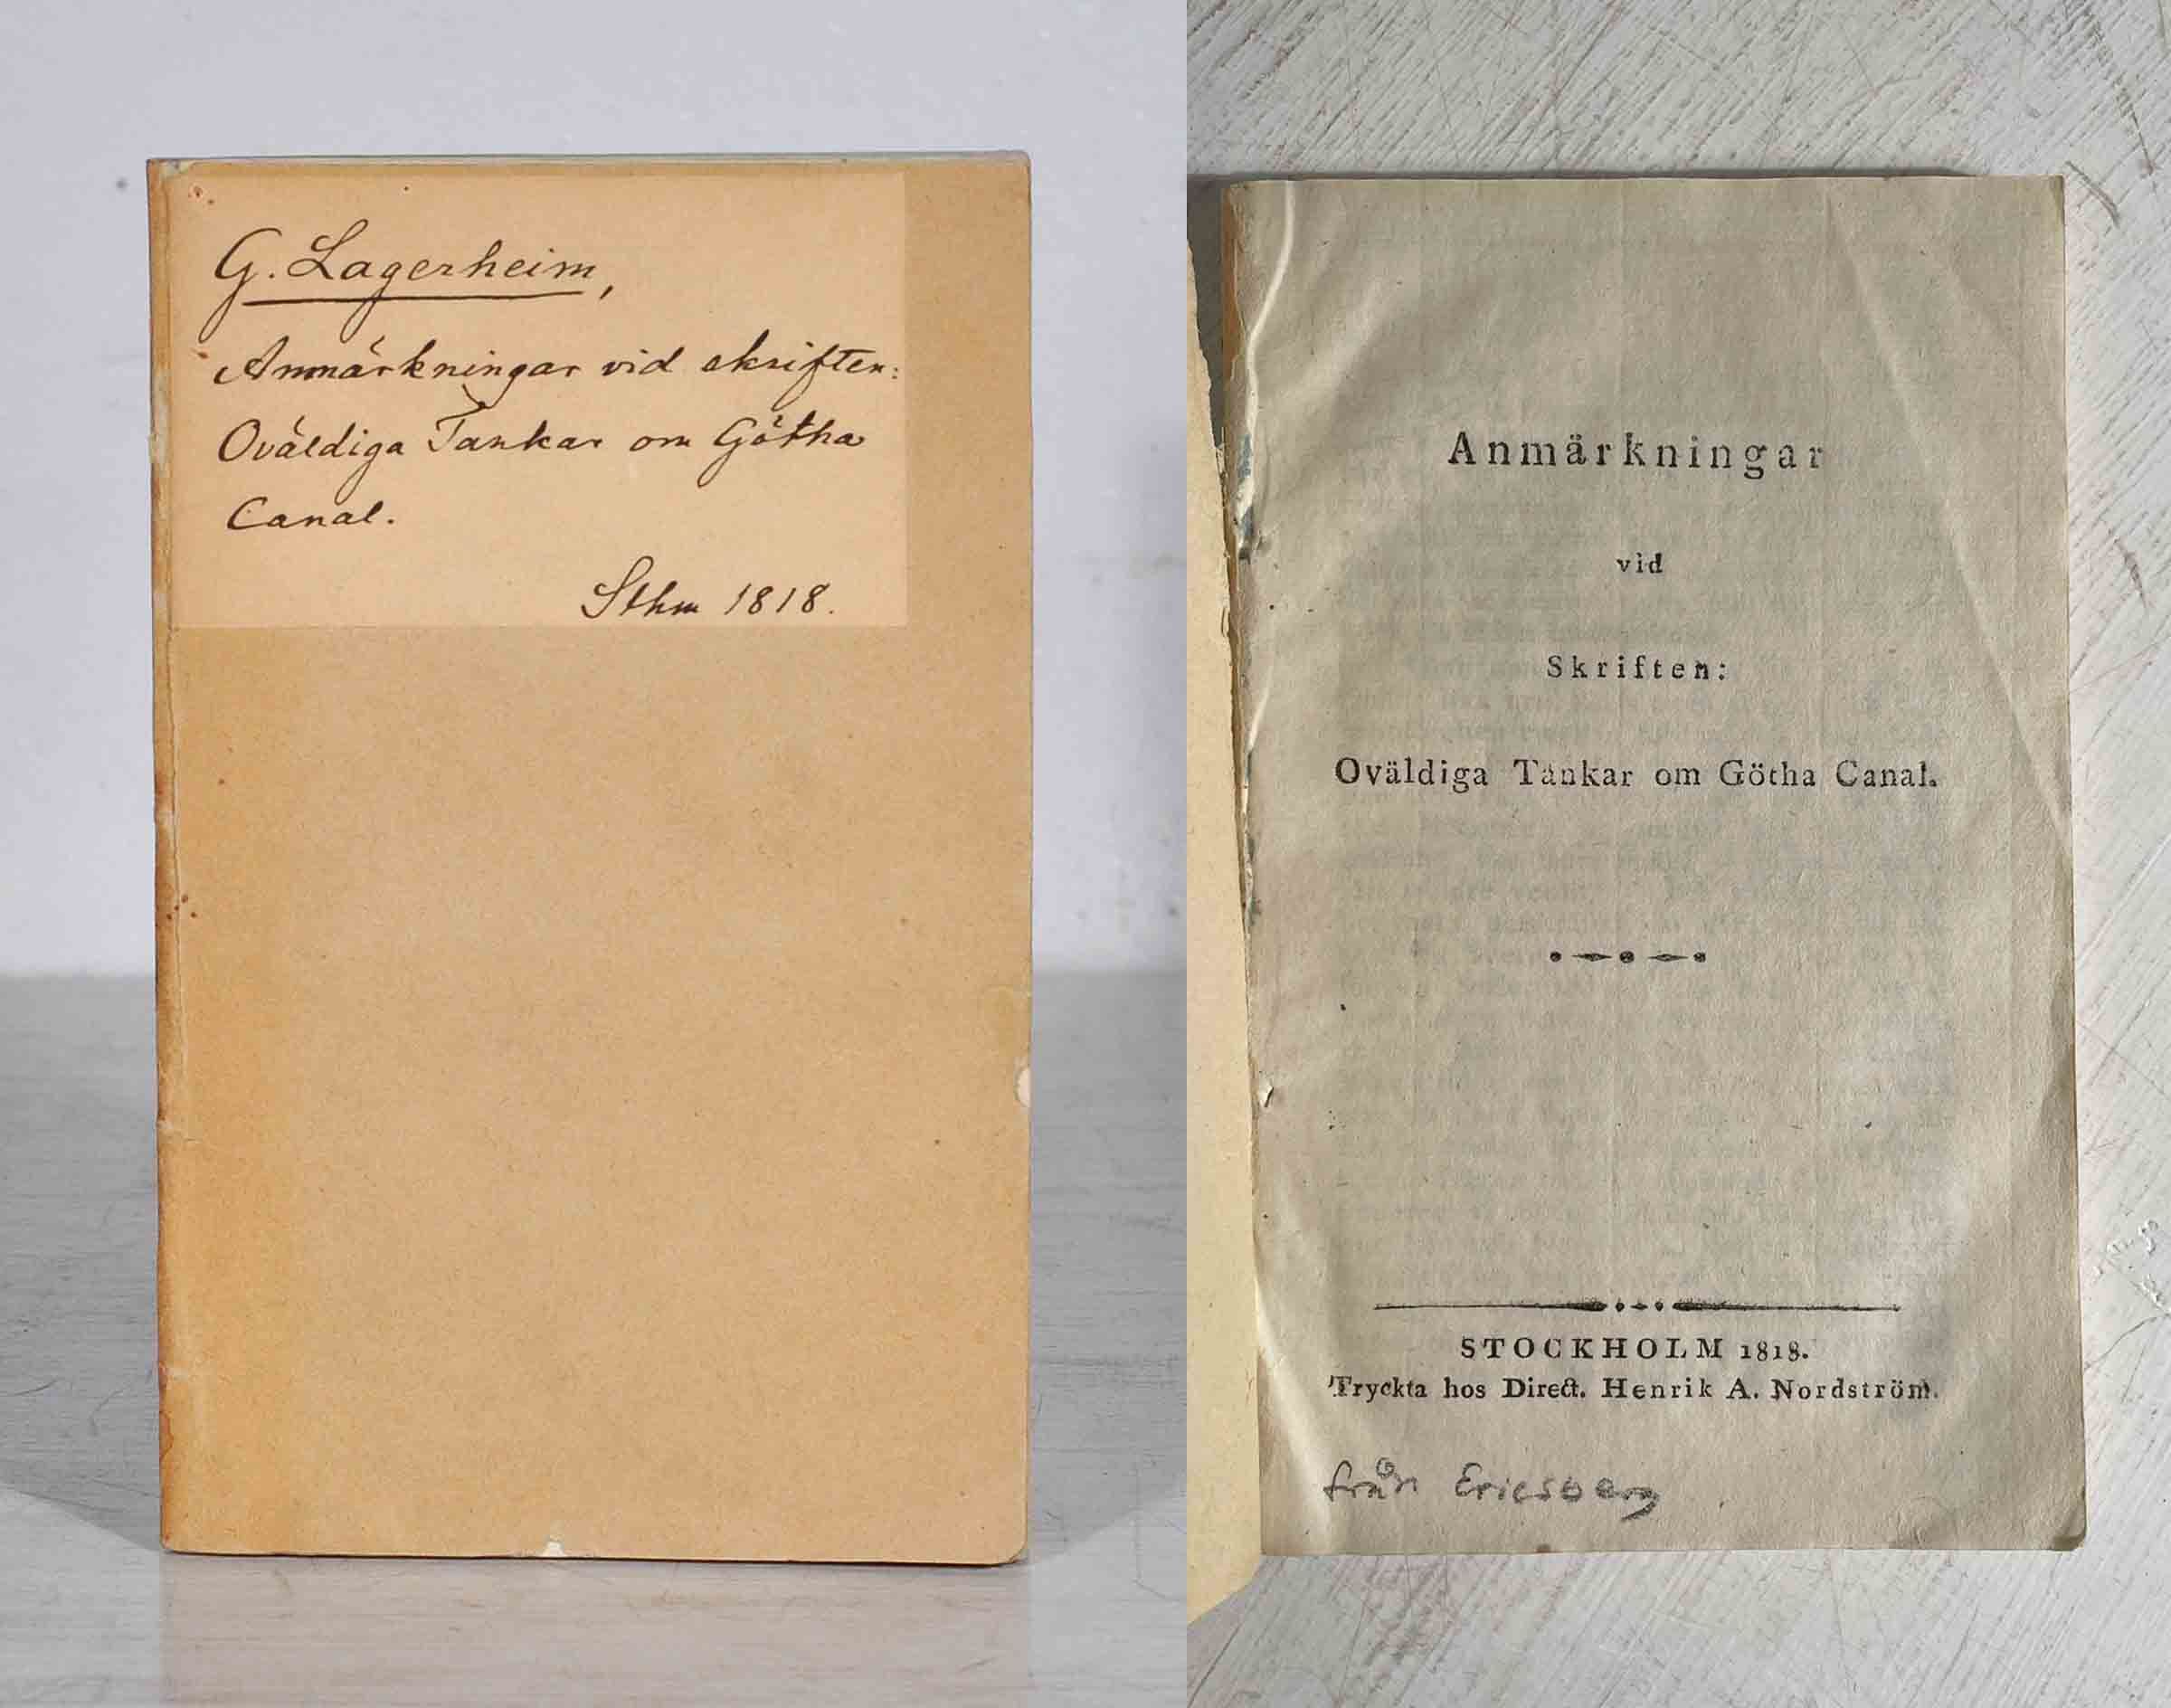 G. Lagerheim,
Anmärkningar vid skriften:
Oväldiga Tankar om Götha
Canal.
Sthm 1818.
Anmärkningar
vid
Skriften:
Oväldiga Tankar om Götha Canal.
STOCKHOLM 1818.
Tryckta hos Direct. Henrik A. Nordström.
från Ericsberg